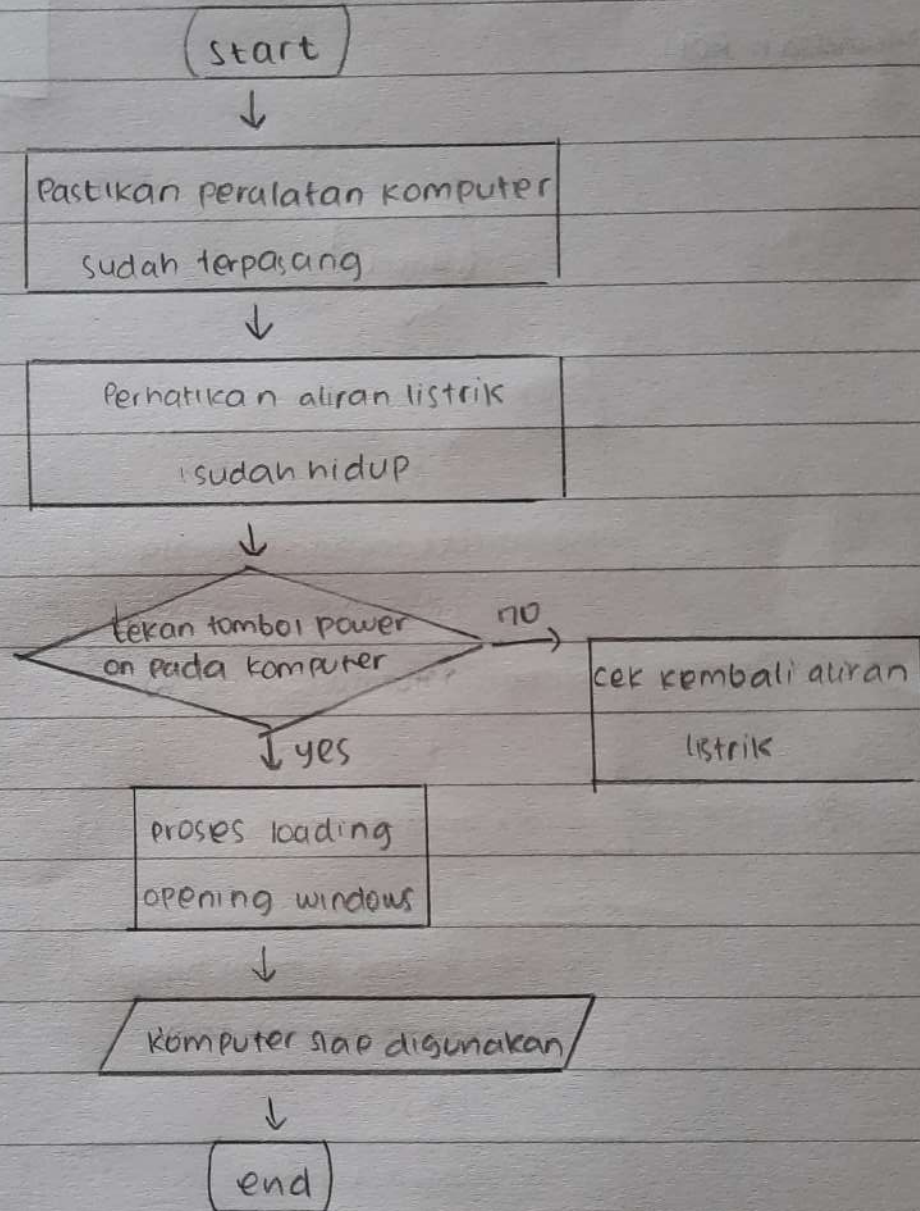 start
Pastikan peralatan komputer
sudah terpasang
Perhatikan aliran listrik
sudah hidup
tekan tombol power
on pada komputer
no
cek kembali aliran
listrik
yes
proses loading
opening windows
komputer siap digunakan
end